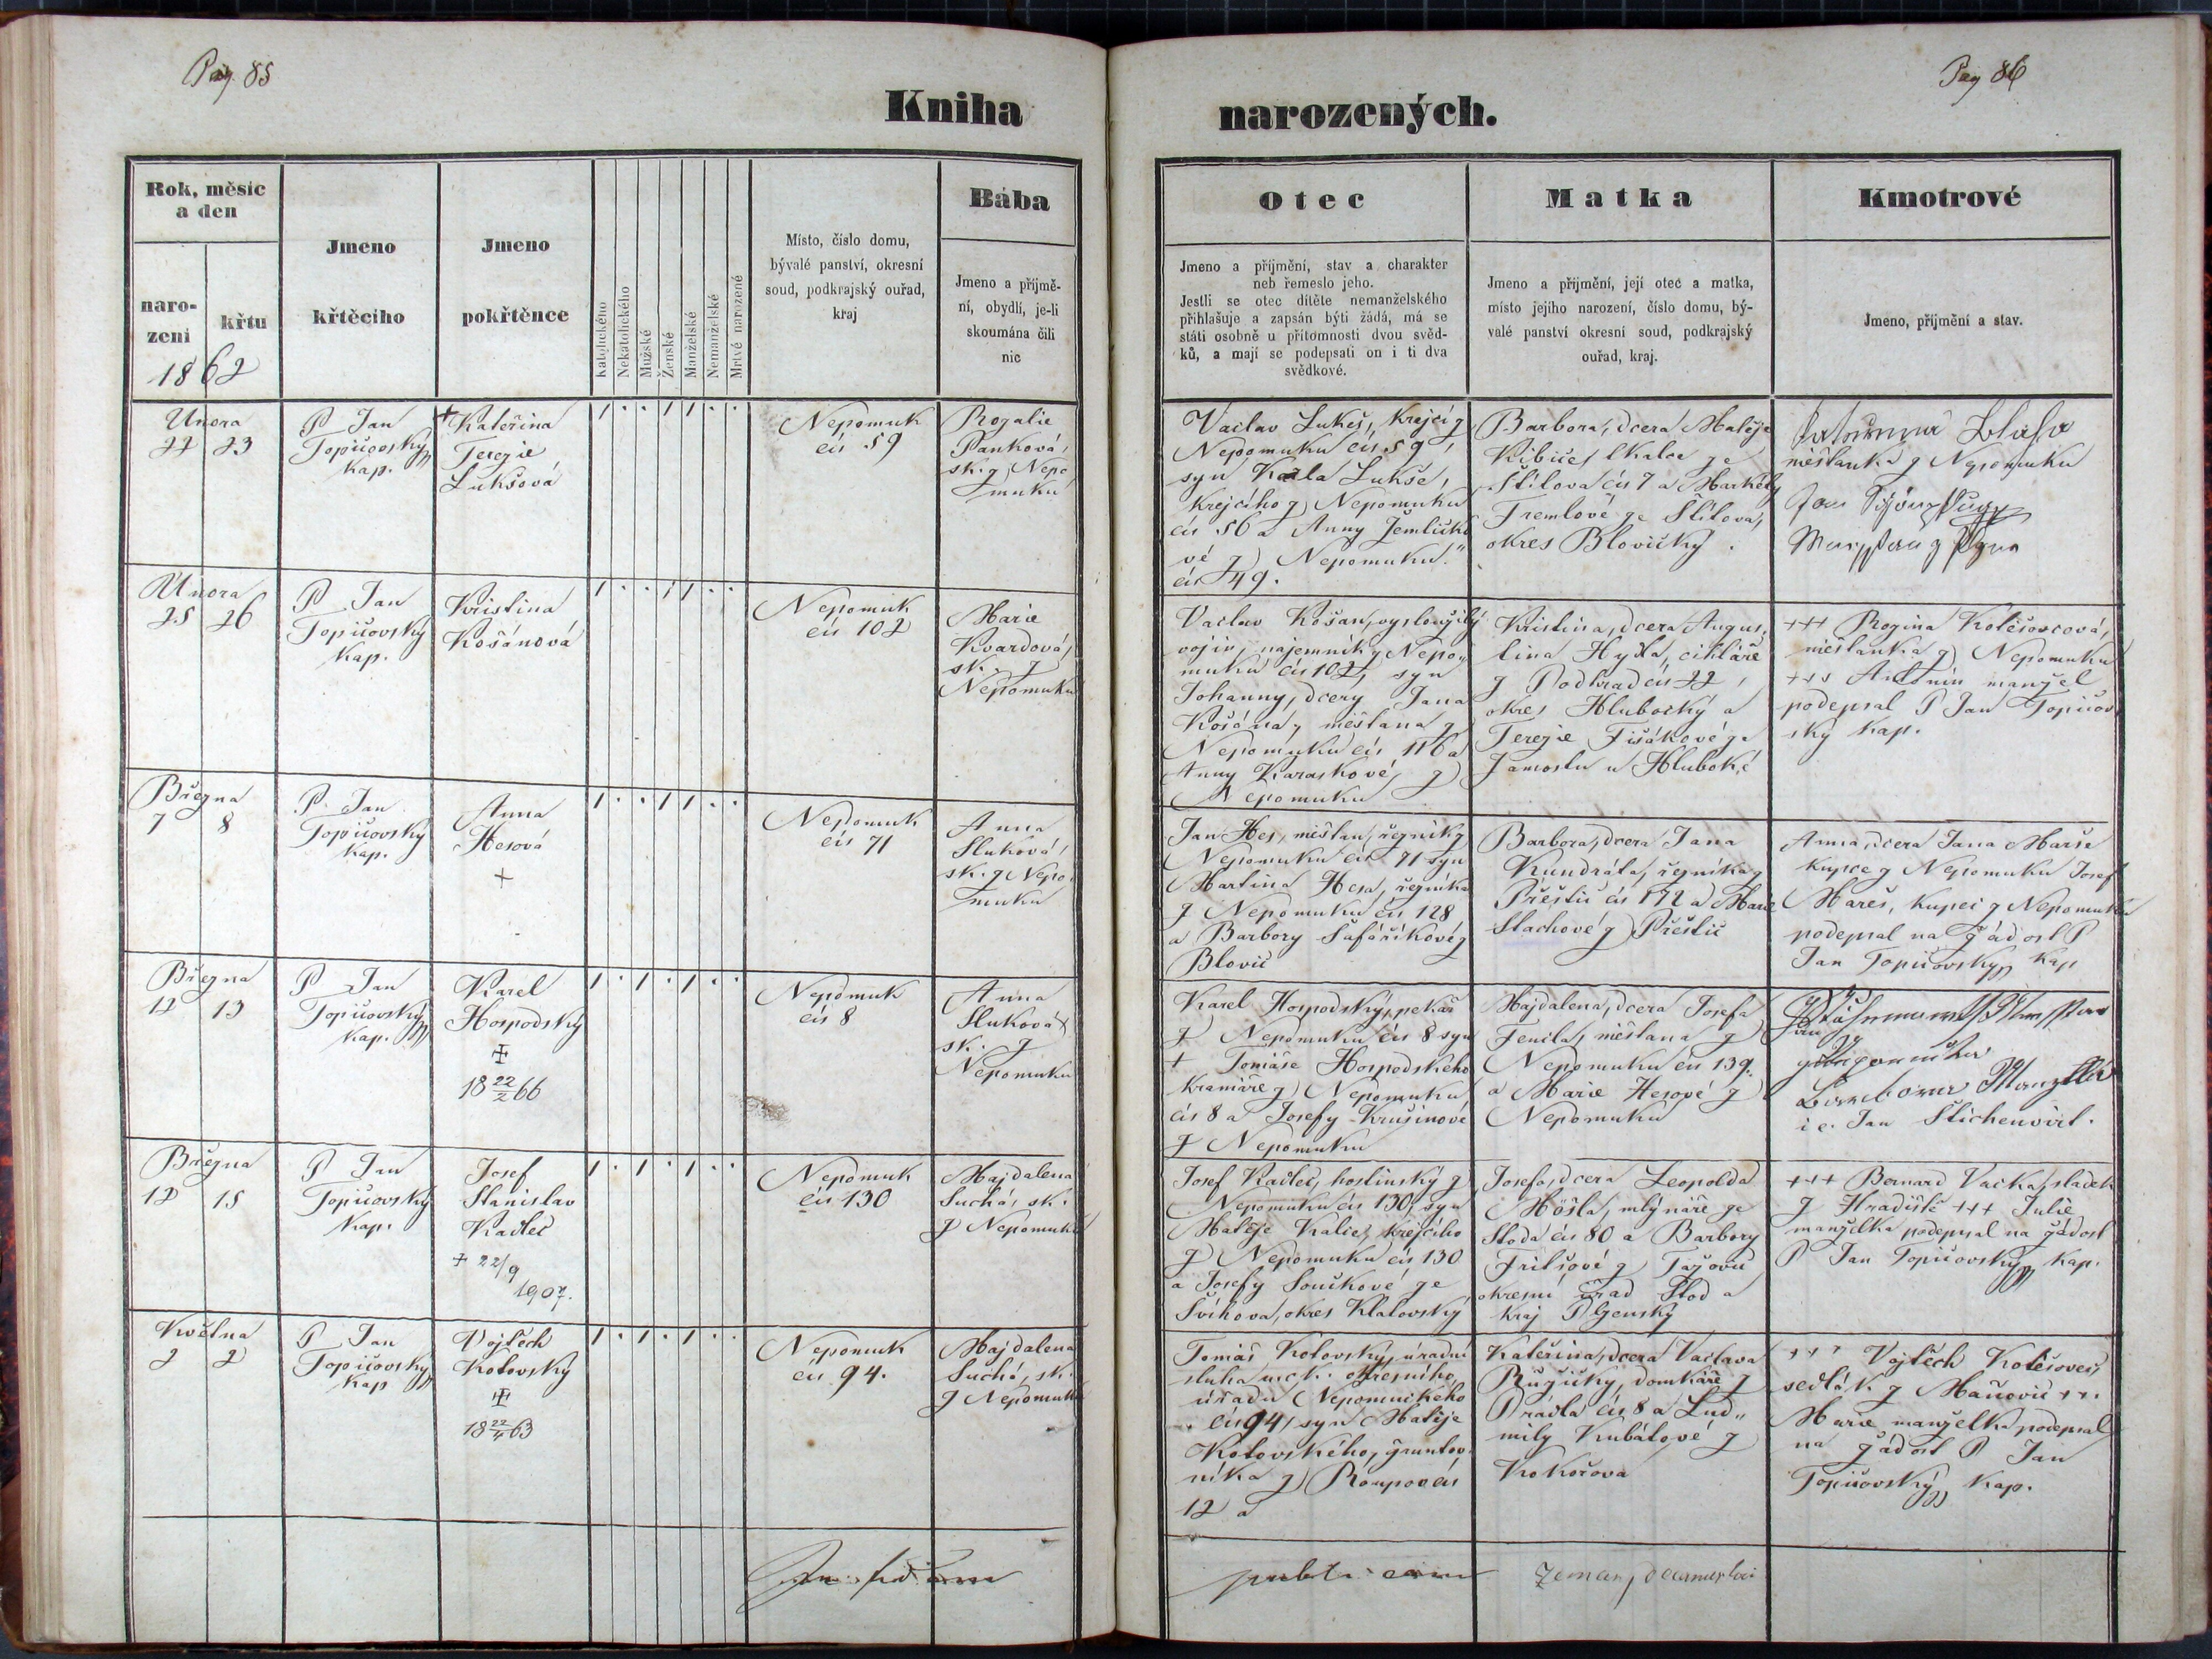 Pag. 85
Pag 86
Kniha narozených.
Rok, měsíc
a den
naro-
zení
křtu
1862
Jmeno
křtěcího
Jmeno
pokřtěnce
Katolického
Nekatolického
Mužské
Ženské
Manželské
Nemanželské
Mrtvě narozené
Místo, číslo domu,
bývalé panství, okresní
soud, podkrajský ouřad,
kraj
Bába
Jmeno a přijmě-
ní, obydlí, je-li
skoumána čili
nic
Otec
Jmeno a příjmění, stav a charakter
neb řemeslo jeho.
Jestli se otec dítěte nemanželského
přihlašuje a zapsán býti žádá, má se
státi osobně u přítomnosti dvou svěd-
ků, a mají se podepsati on i ti dva
svědkové.
Matka
Jmeno a přijmění, její otec a matka,
místo jejího narození, číslo domu, bý-
valé panství okresní soud, podkrajský
ouřad, kraj.
Kmotrové
Jmeno, přijmění a stav.
Února
22 23
P Jan
Topičovský
kap.
+ Kateřina
Terezie
Lukšová
Nepomuk
čís 59
Rozalie
Panková,
sk. z Nepo
muku
Vaclav Lukeš, krejčí z
Nepomuku čís 59,
syn Karla Lukše,
krejčího z Nepomuku
čís 56 a Anny Žemličko
vé z Nepomuku
čís 49.
Barbora, dcera Matěje
tkalce ze
Štítova čís 7 a Markéty
Tremlové ze Štítova,
okres Blovický.
Blaha
měštanka z Nepomuku
Února
25 26
P Jan
Topičovský
kap.
Kristina
Košánová
Nepomuk
čís 102
Marie
Kvardová,
sk. z
Nepomuku
Vaclav Košan, vysloužilý
vojín, najemník z Nepo
muku čís 102, syn
Johanny, dcery Jana
Košána, měštana z
Nepomuku čís 116 a
Anny Karaskové z
Nepomuku
Kristina, dcera Augus
tina Hyťla, cihláře
z Podhrad čís 22,
okres Hlubocký a
Terezie Fišákové ze
Zamostu u Hluboké
+++ Rozina Kotěšovcová,
měštanka z Nepomuku
+++ Antonín manžel
podepsal P Jan Topičov
ský kap.
Března
7 8
P. Jan
Topičovský
kap.
Anna
Hesová
+
Nepomuk
čís 71
Anna
Sluková,
sk. z Nepo
muku
Jan Hes, měštan, řezník z
Nepomuku čís 71 syn
Martina Hesa, řezníka
z Nepomuku čís 128
a Barbory Safaříkové z
Blovic
Barbora, dcera Jana
Kundráta, řezníka z
Přeštic čís 172 a Marie
Stachové z Přeštic
Anna, dcera Jana Mareše
kupce z Nepomuku Josef
Mareš, kupec z Nepomuku
podepsal na žádost P
Jan Topičovský kap
Března
12 13
P Jan
Topičovský
kap.
Karel
Hospodský
+
18 22/2 66
Nepomuk
čís 8
Anna
Sluková
sk. z
Nepomuku
Karel Hospodský, pekař
z Nepomuku čís 8 syn
+ Tomáše Hospodského
kramáře z Nepomuku
čís 8 a Josefy Krušinové
z Nepomuku
Majdalena, dcera Josefa
Fencla, měštana z
Nepomuku čís 139.
a Marie Hesové z
Nepomuku
Barbora Manzelka
i.e. Jan Stichenwirt.
Března
12 15
P Jan
Topičovský
kap.
Josef
Stanislav
Kadlec
+ 22/9
1907.
Nepomuk
čís 130
Majdalena
Suchá, sk.
z Nepomuku
Josef Kadlec, hostinský z
Nepomuku čís 130, syn
Matěje Kalce, krejčího
z Nepomuku čís 130
a Josefy Součkové ze
Švihova, okres Klatovský
Josefa, dcera Leopolda
Hösla, mlynáře ze
Stoda čís 80 a Barbory
Fritšové z
okresní úřad Stod a
kraj Plzenský
+++ Bernard Vacka, sladek
z Hradiště +++ Julie
manželka podepsal na žádost
P Jan Topičovský, kap.
Května
2 2
P Jan
Topičovský
kap
Vojtěch
Kotovský
+
18 22/4 63
Nepomuk
čís 94.
Majdalena
Suchá, sk.
z Nepomuku
Tomáš Kotovský, úřadní
sluha u c.k. okresního
úřadu Nepomuckého
čís 94, syn Matěje
Kotovského, gruntov
níka z Roupov čís
12 a
Kateřina, dcera Vaclava
Růžičky, domkáře z
Prádla čís 8 a Lud„
mily Kubátové z
Kokořova
+++ Vojtěch Kotěšovec,
sedlák z Mačovic +++
Marie manželka podepsal
na žádost P Jan
Topičovský, kap.